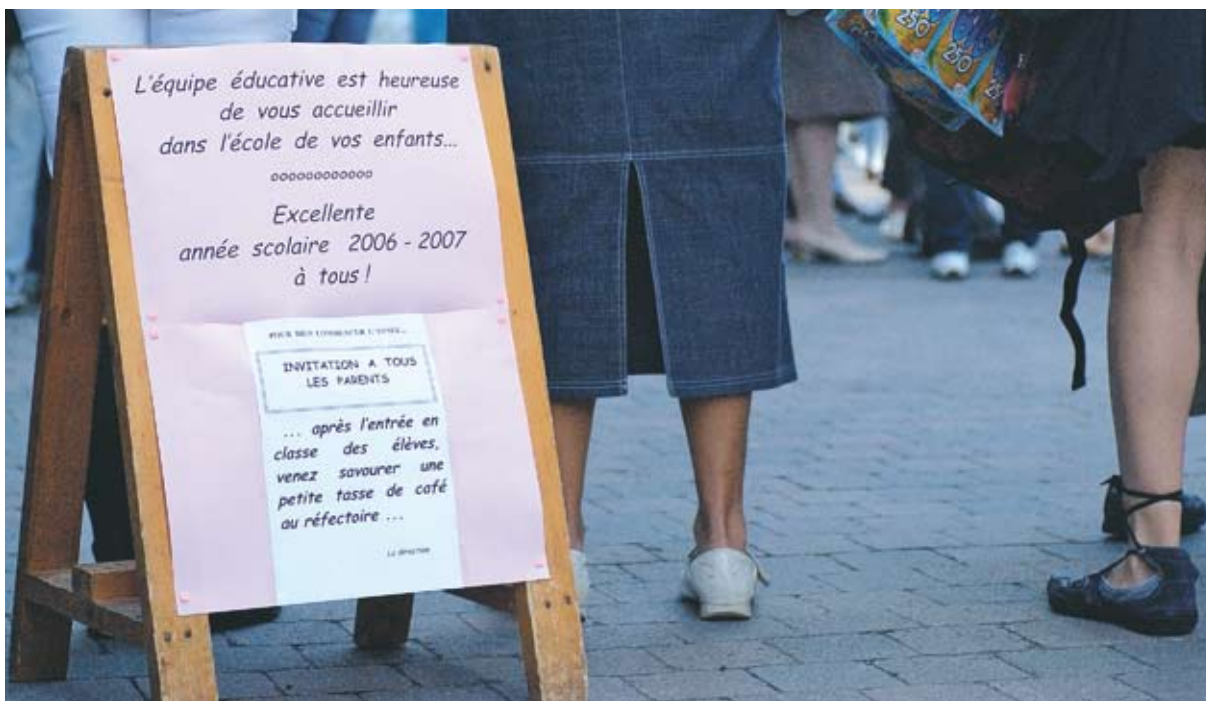 L'équipe éducative est heureuse
de vous accueillir
dans l'école de vos enfants...
oooooooooooo
Excellente
année scolaire 2006 - 2007
à tous !
POUR BIEN COMMENCER L'ANNEE...
INVITATION A TOUS
LES PARENTS
... après l'entrée en
classe des élèves,
venez savourer une
petite tasse de café
au réfectoire ...
La direction
250
250
25